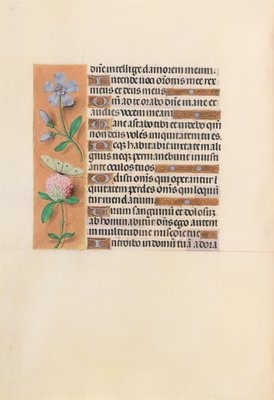 dñe intellige clamorem meum.
Intende voci orõnis mee rex
meus et deus meus.
Qm̃ ad te orabo dñe mane ex
audies vocem meam.
Mane astabo tibi et videbo qm̃
non deus volẽs iniquitatem tu es.
Neqȝ habitabit iuxta te mali
gnus neqȝ permanebunt iniusti
ante oculos tuos.
Odisti om̃s qui operantur i
quitatem perdes om̃s qui loqũn
tur mendatium.
Virum sanguinũ et dolosũ
abhominabitur dñs ego autem
in multitudine miscd̃ie tue.
Introibo in domũ tuã adora